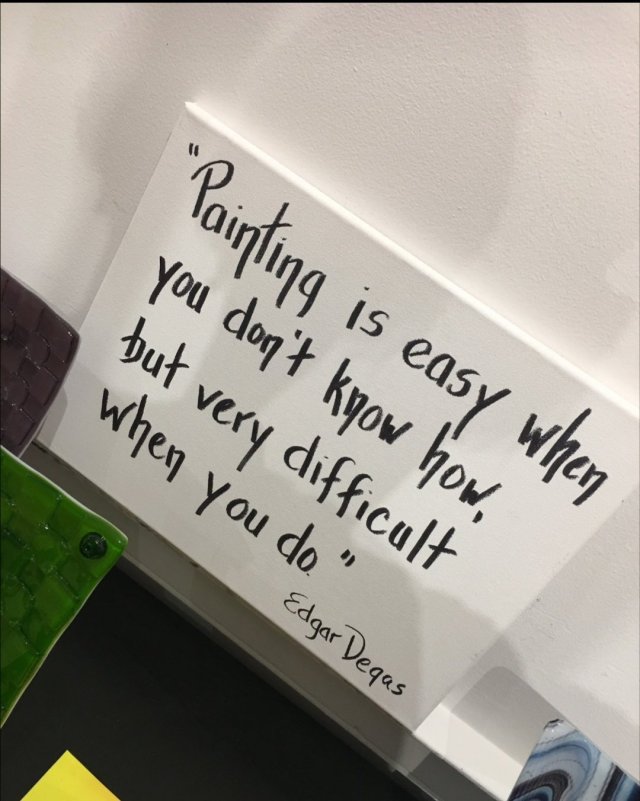 "Painting is easy when
you don't know how,
but very difficult
when you do."
Edgar Degas